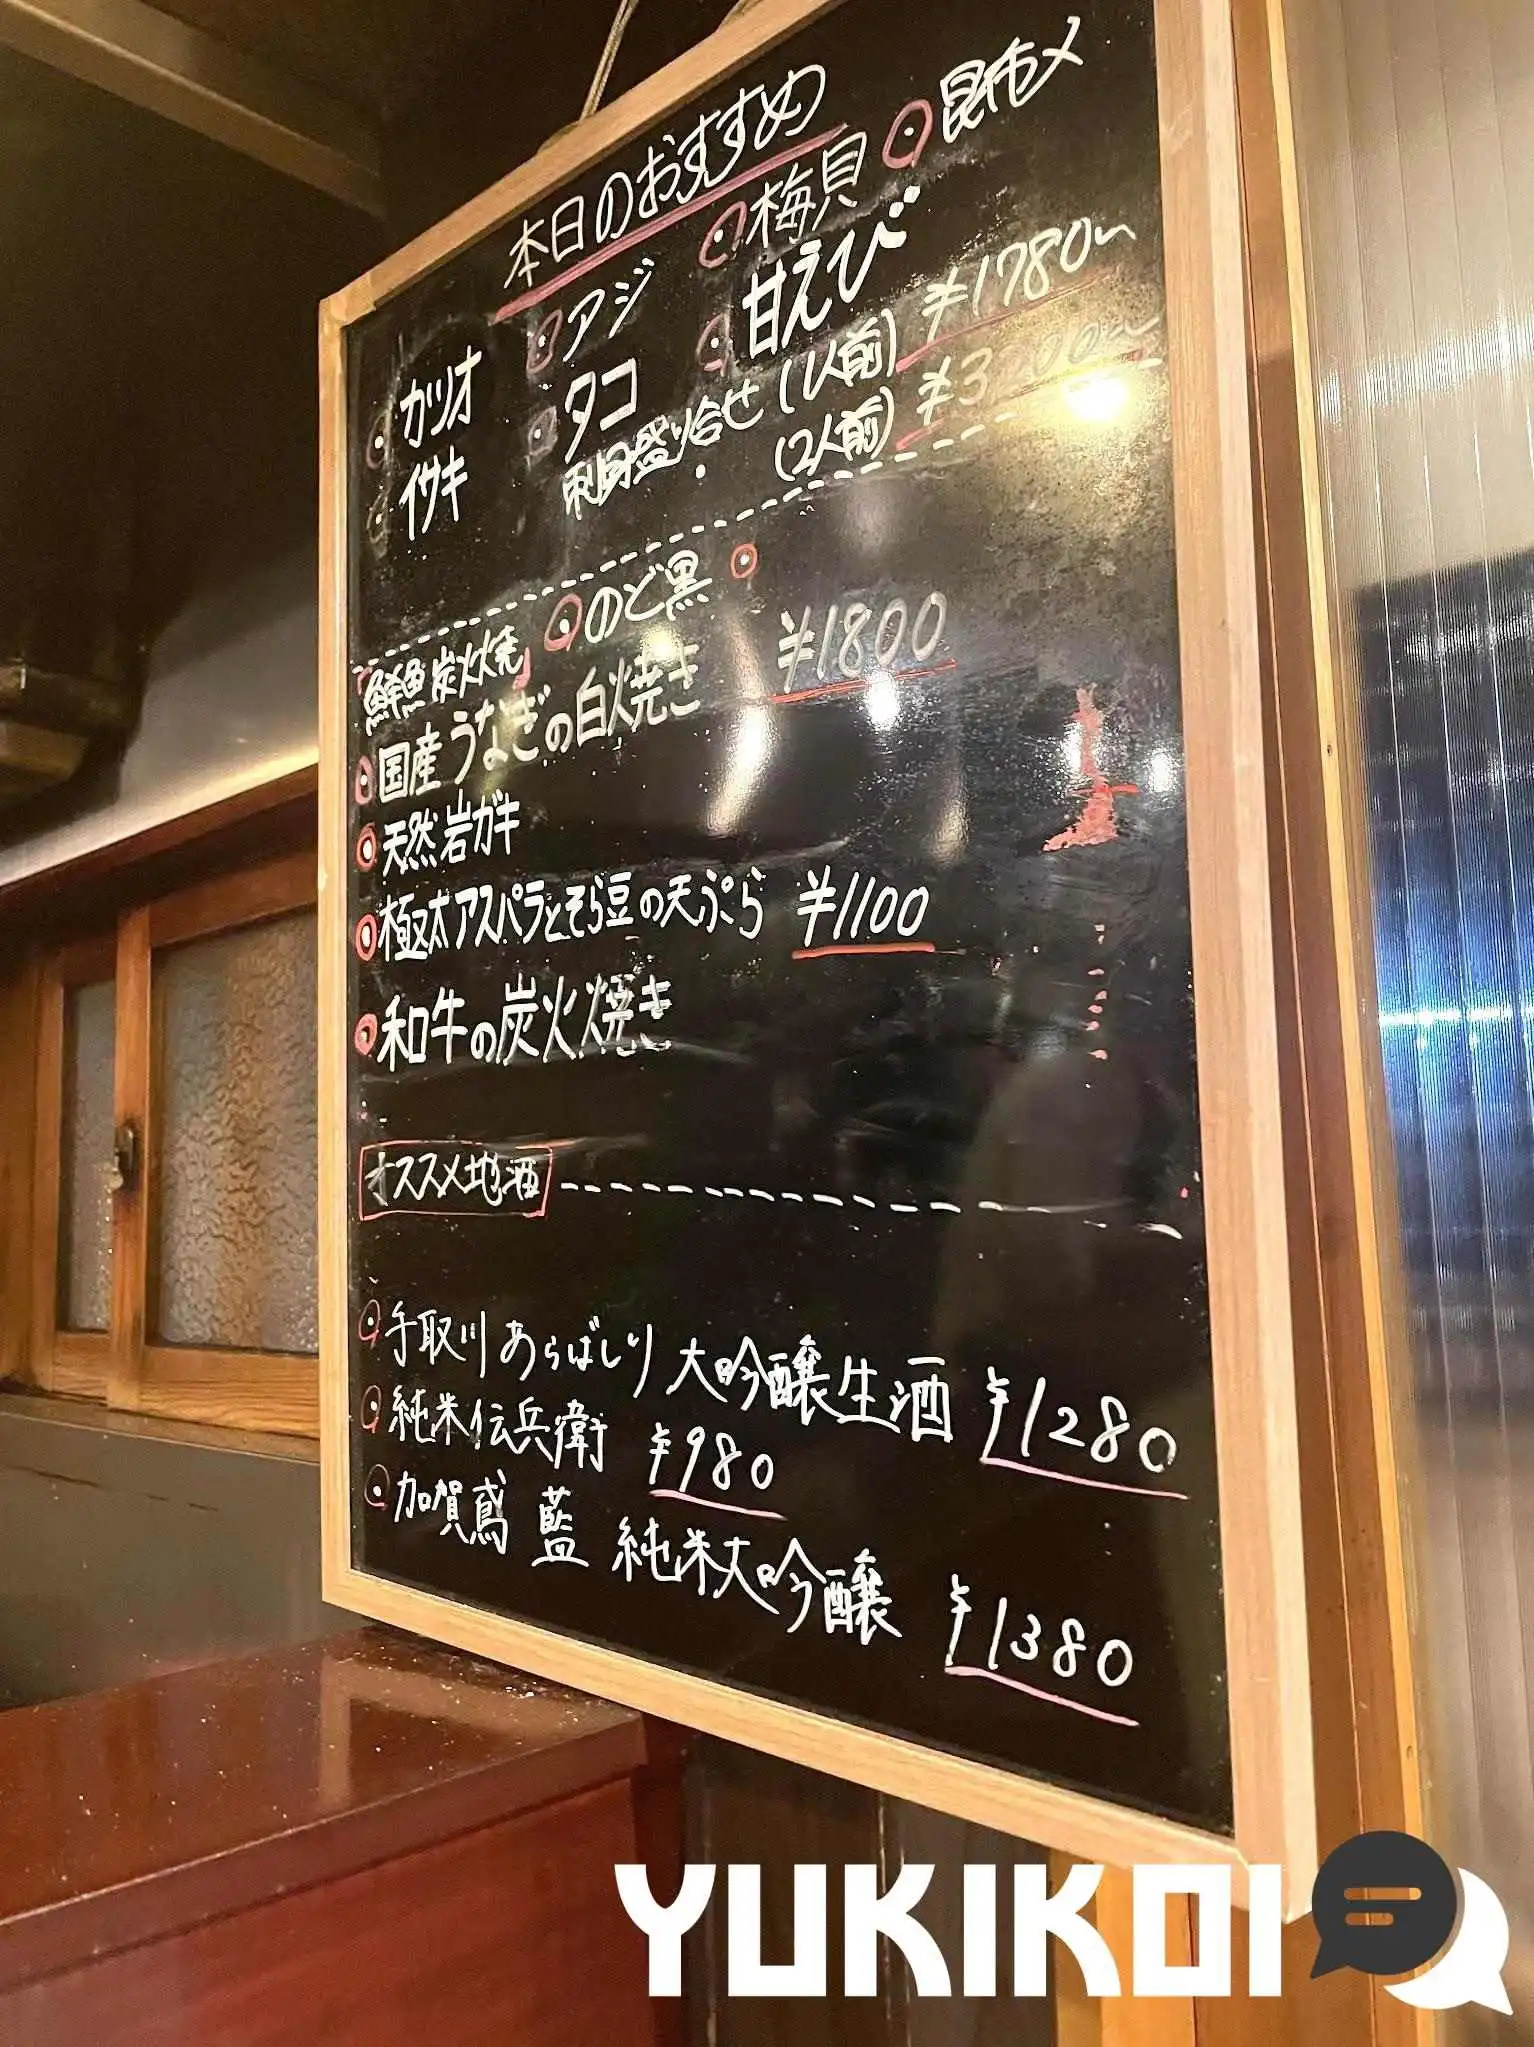 本日のおすすめ
カツオ アジ 梅貝 昆布〆
イサキ タコ 甘えび
刺身盛り合せ (1人前) ¥1780〜
(2人前) ¥3
「鮮魚炭火焼」 のど黒
国産うなぎの白焼き ¥1800
天然岩ガキ
極太アスパラとそら豆の天ぷら ¥1100
和牛の炭火焼き
オススメ地酒
手取川 あらばしり 大吟醸生酒 ¥1280
純米伝兵衛 ¥980
加賀鳶 藍 純米大吟醸 ¥1380
YUKIKOI